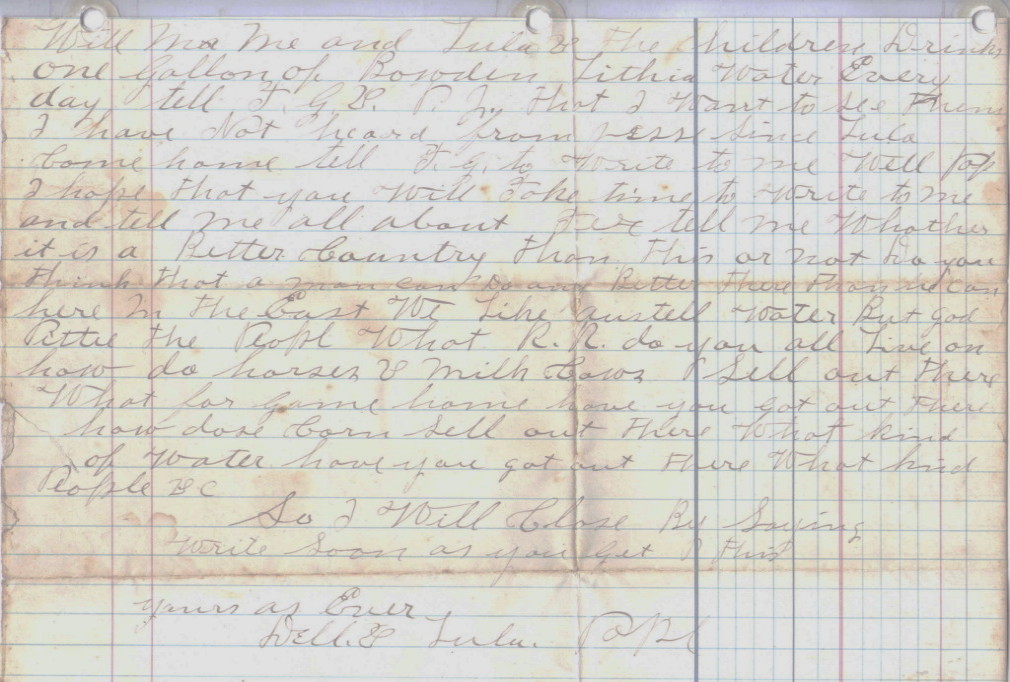 Will Ma Me and Lula & the Children Drinks
one Gallon of Bowden Lithia Water Every
day tell F. G & P. Jr, that I Want to see Them
I have Not heard from Jesse Since Lula
Come home tell F. G. to Write to me Well Pop
I hope that you Will Take time to Write to me
and tell me all about tell me Whather
it is a Better Country Than This or not Do you
think that a man can do any Better There Than we can
here In the East We Like austell Water But God
Pittie the Peopl What R. R. do you all Live on
how do horses & Milk Cows Sell out There
What for game home have you got out There
how dose Corn Sell out There What kind
of Water have you got out There What kind
People &c
So I Will Close By Saying
Write Soon as you Get This
yours as Ever
Dell. & Lula. Pope